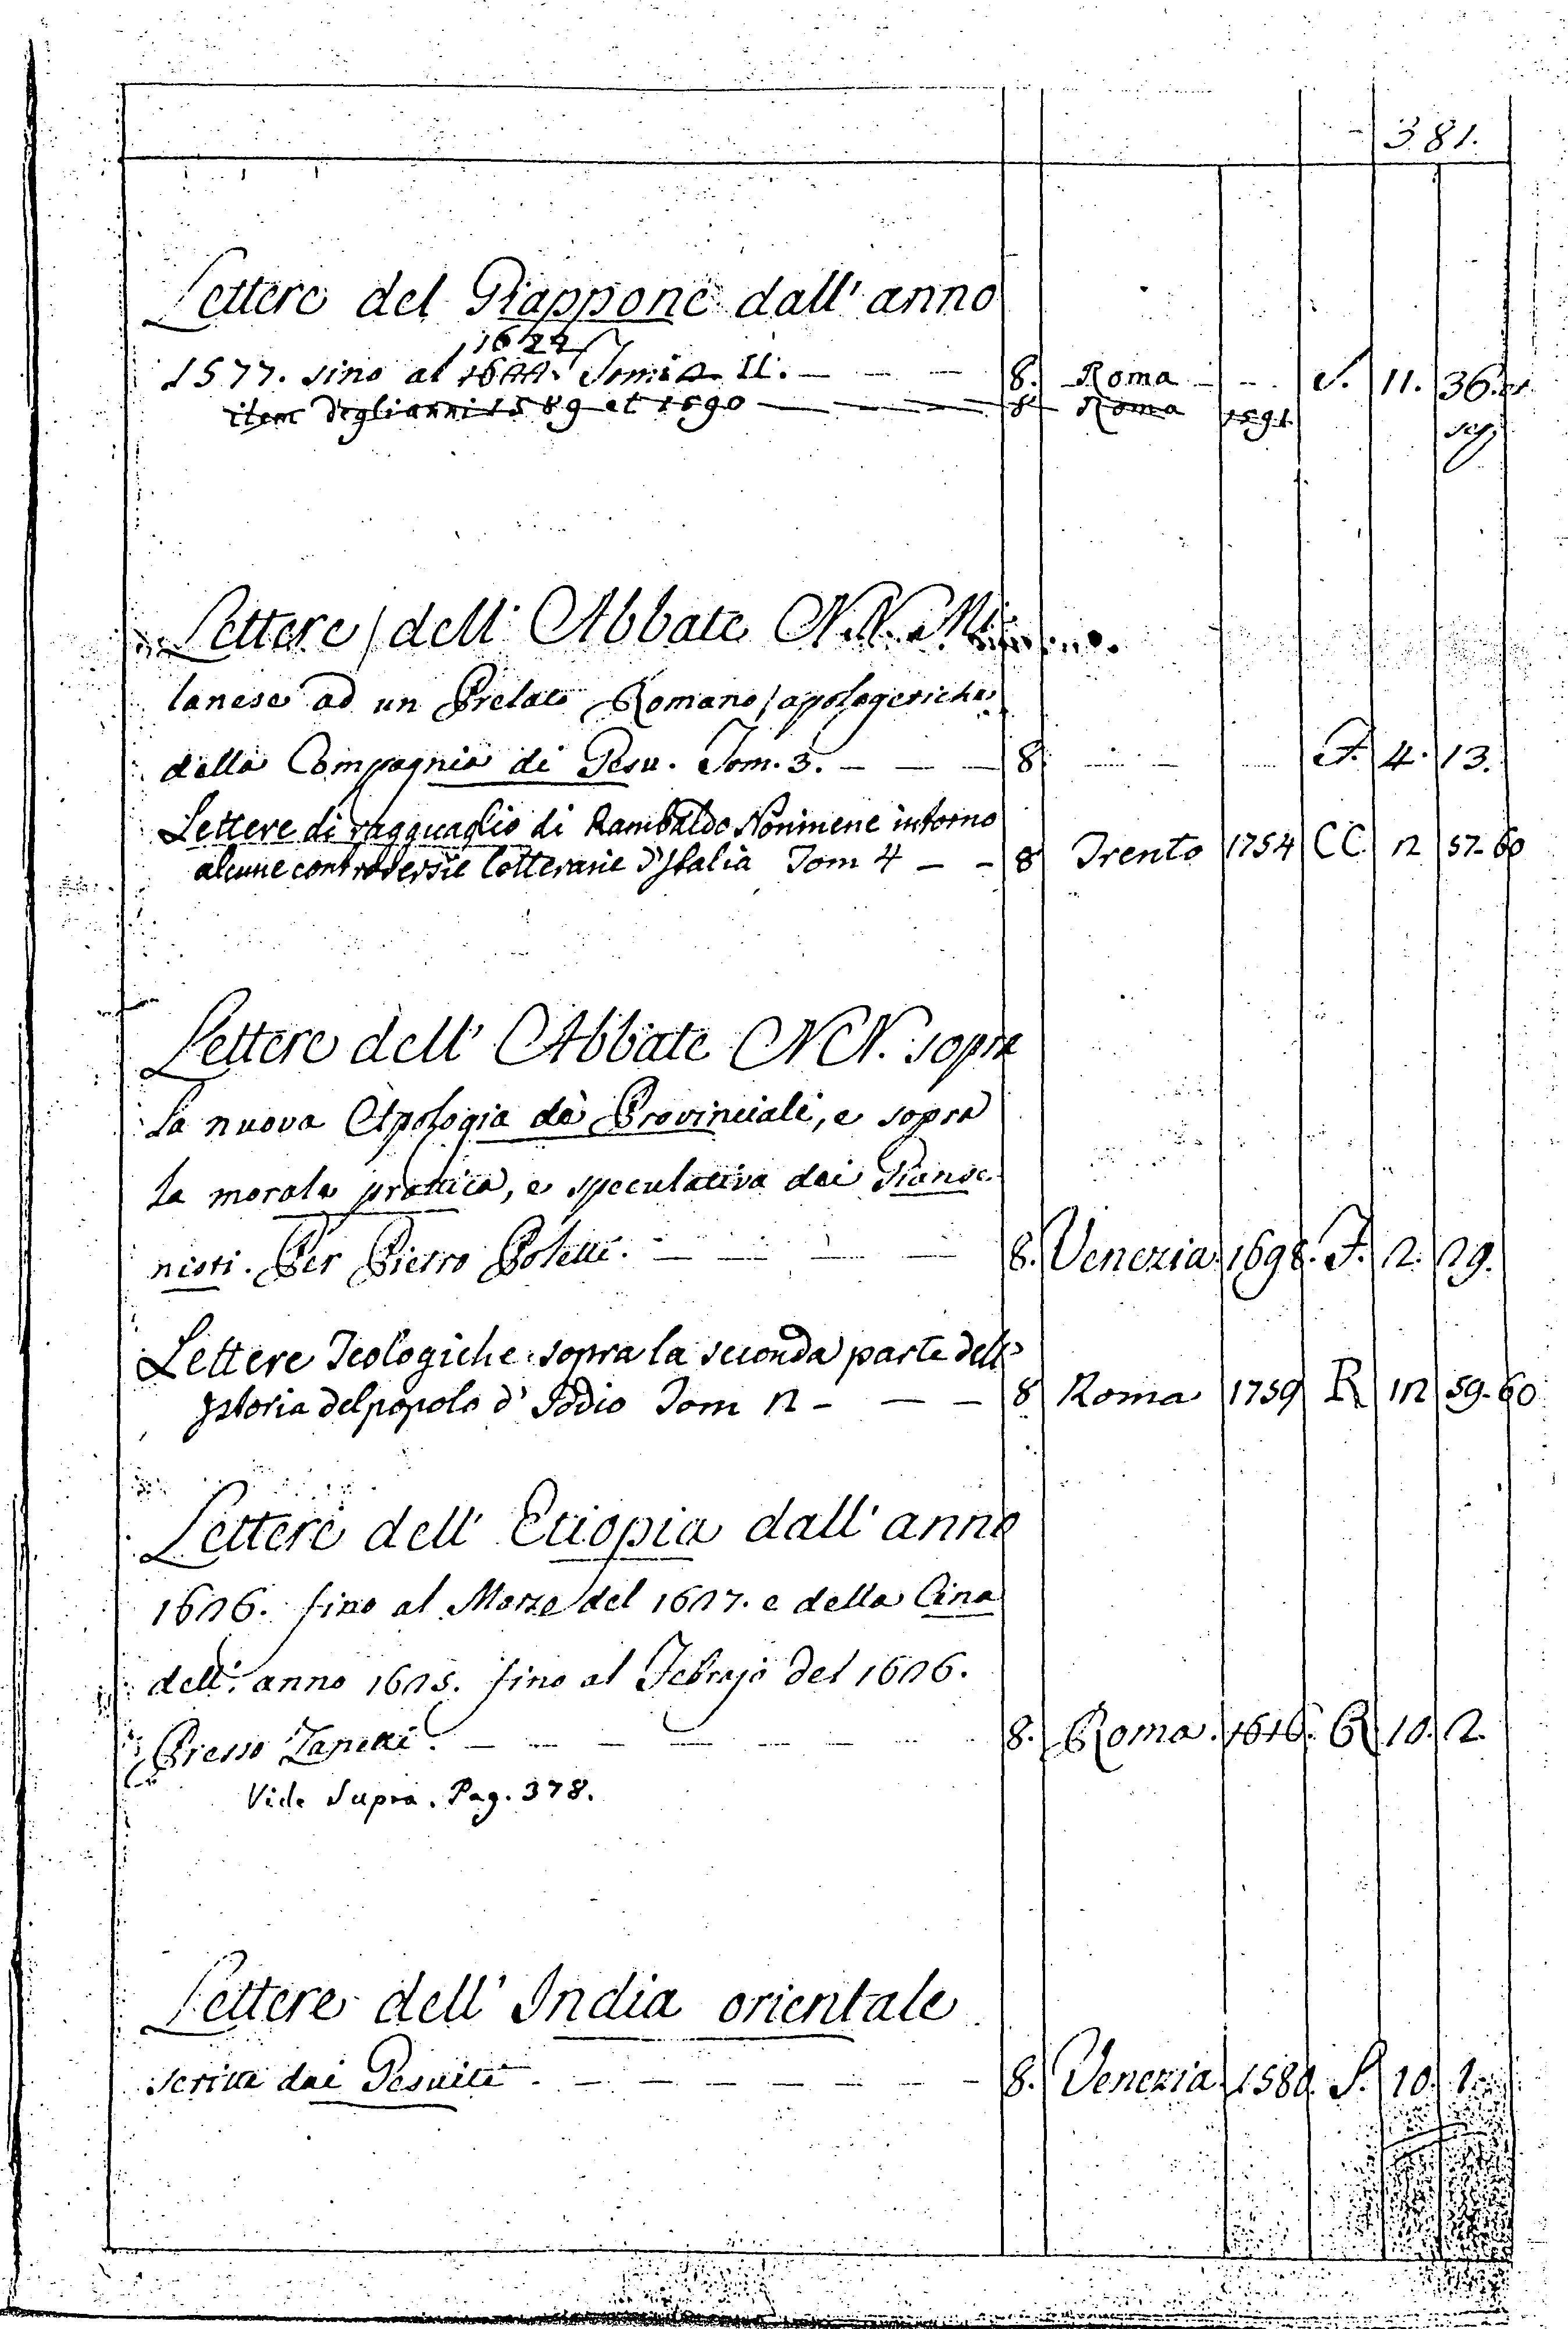 381.
Lettere del Giappone dall' anno
1624
1577. sino al 1600. Tomi II. — — — 8. Roma — — S. 11. 36. et
item degli anni 1589 et 1590 — — — 8 Roma 1591. seq;
Lettere / dell' Abbate N.N. Mi
lanese ad un Prelato Romano / apologetiche
della Compagnia di Gesu. Tom. 3. — — — 8 — — — F. 4. 13.
Lettere di ragguaglio di Rambaldo Norimene intorno
alcune controversie letterarie d'Italia Tom 4 — — 8 Trento 1754 CC 2 57-60
Lettere dell' Abbate N.N. sopra
la nuova Apologia de Provinciali, e sopra
la morale prattica, e speculativa dei Gianse-
nisti. Per Pietro Poletti. — — — — 8. Venezia. 1698. F. 2. 29.
Lettere Teologiche sopra la seconda parte dell'
Istoria del popolo d' Iddio Tom 2 — — — 8 Roma 1759 R 12 59-60
Lettere dell' Etiopia dall' anno
1626. fino al Marzo del 1627. e della Cina
dell' anno 1625. fino al Febrajo del 1626.
Presso Zanetti. — — — — — — 8. Roma. R 10. 2.
Vide Supra. Pag. 378.
Lettere dell' India orientale
scritte dai Gesuiti — — — — — — — 8. Venezia. 1580. S. 10. 1.